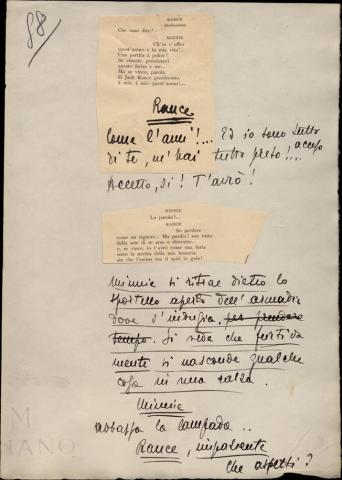 88
RANCE
Che vuoi dire?
MINNIE
Ch'io v'offro
quest'uomo e la mia vita!...
Una partita a poker!
Se vincete, prendetevi
questo ferito e me...
Ma se vinco, parola
di Jack Rance gentiluomo,
è mio, è mio quest'uomo!...
Rance
Come l'ami!... Ed io sono tutto acceso
di te, m'hai tutto preso!...
Accetto, sì! T'avrò!
MINNIE
La parola?...
RANCE
So perdere
come un signore... Ma perdio! son tutto
della sete di te arso e distrutto...
e, se vinco, io t'avrò come una furia
sotto la stretta della mia
sin che l'anima tua ti spiri in gola!
Minnie si ritrae dietro lo
sportello aperto dell'armadio
dove s'indugia, per prendere
tempo. Si vede che furtiva
mente si nasconde qualche
cosa in una calza.
Minnie
abbassa la lampada..
Rance, impaziente
che aspetti?
M
IANO